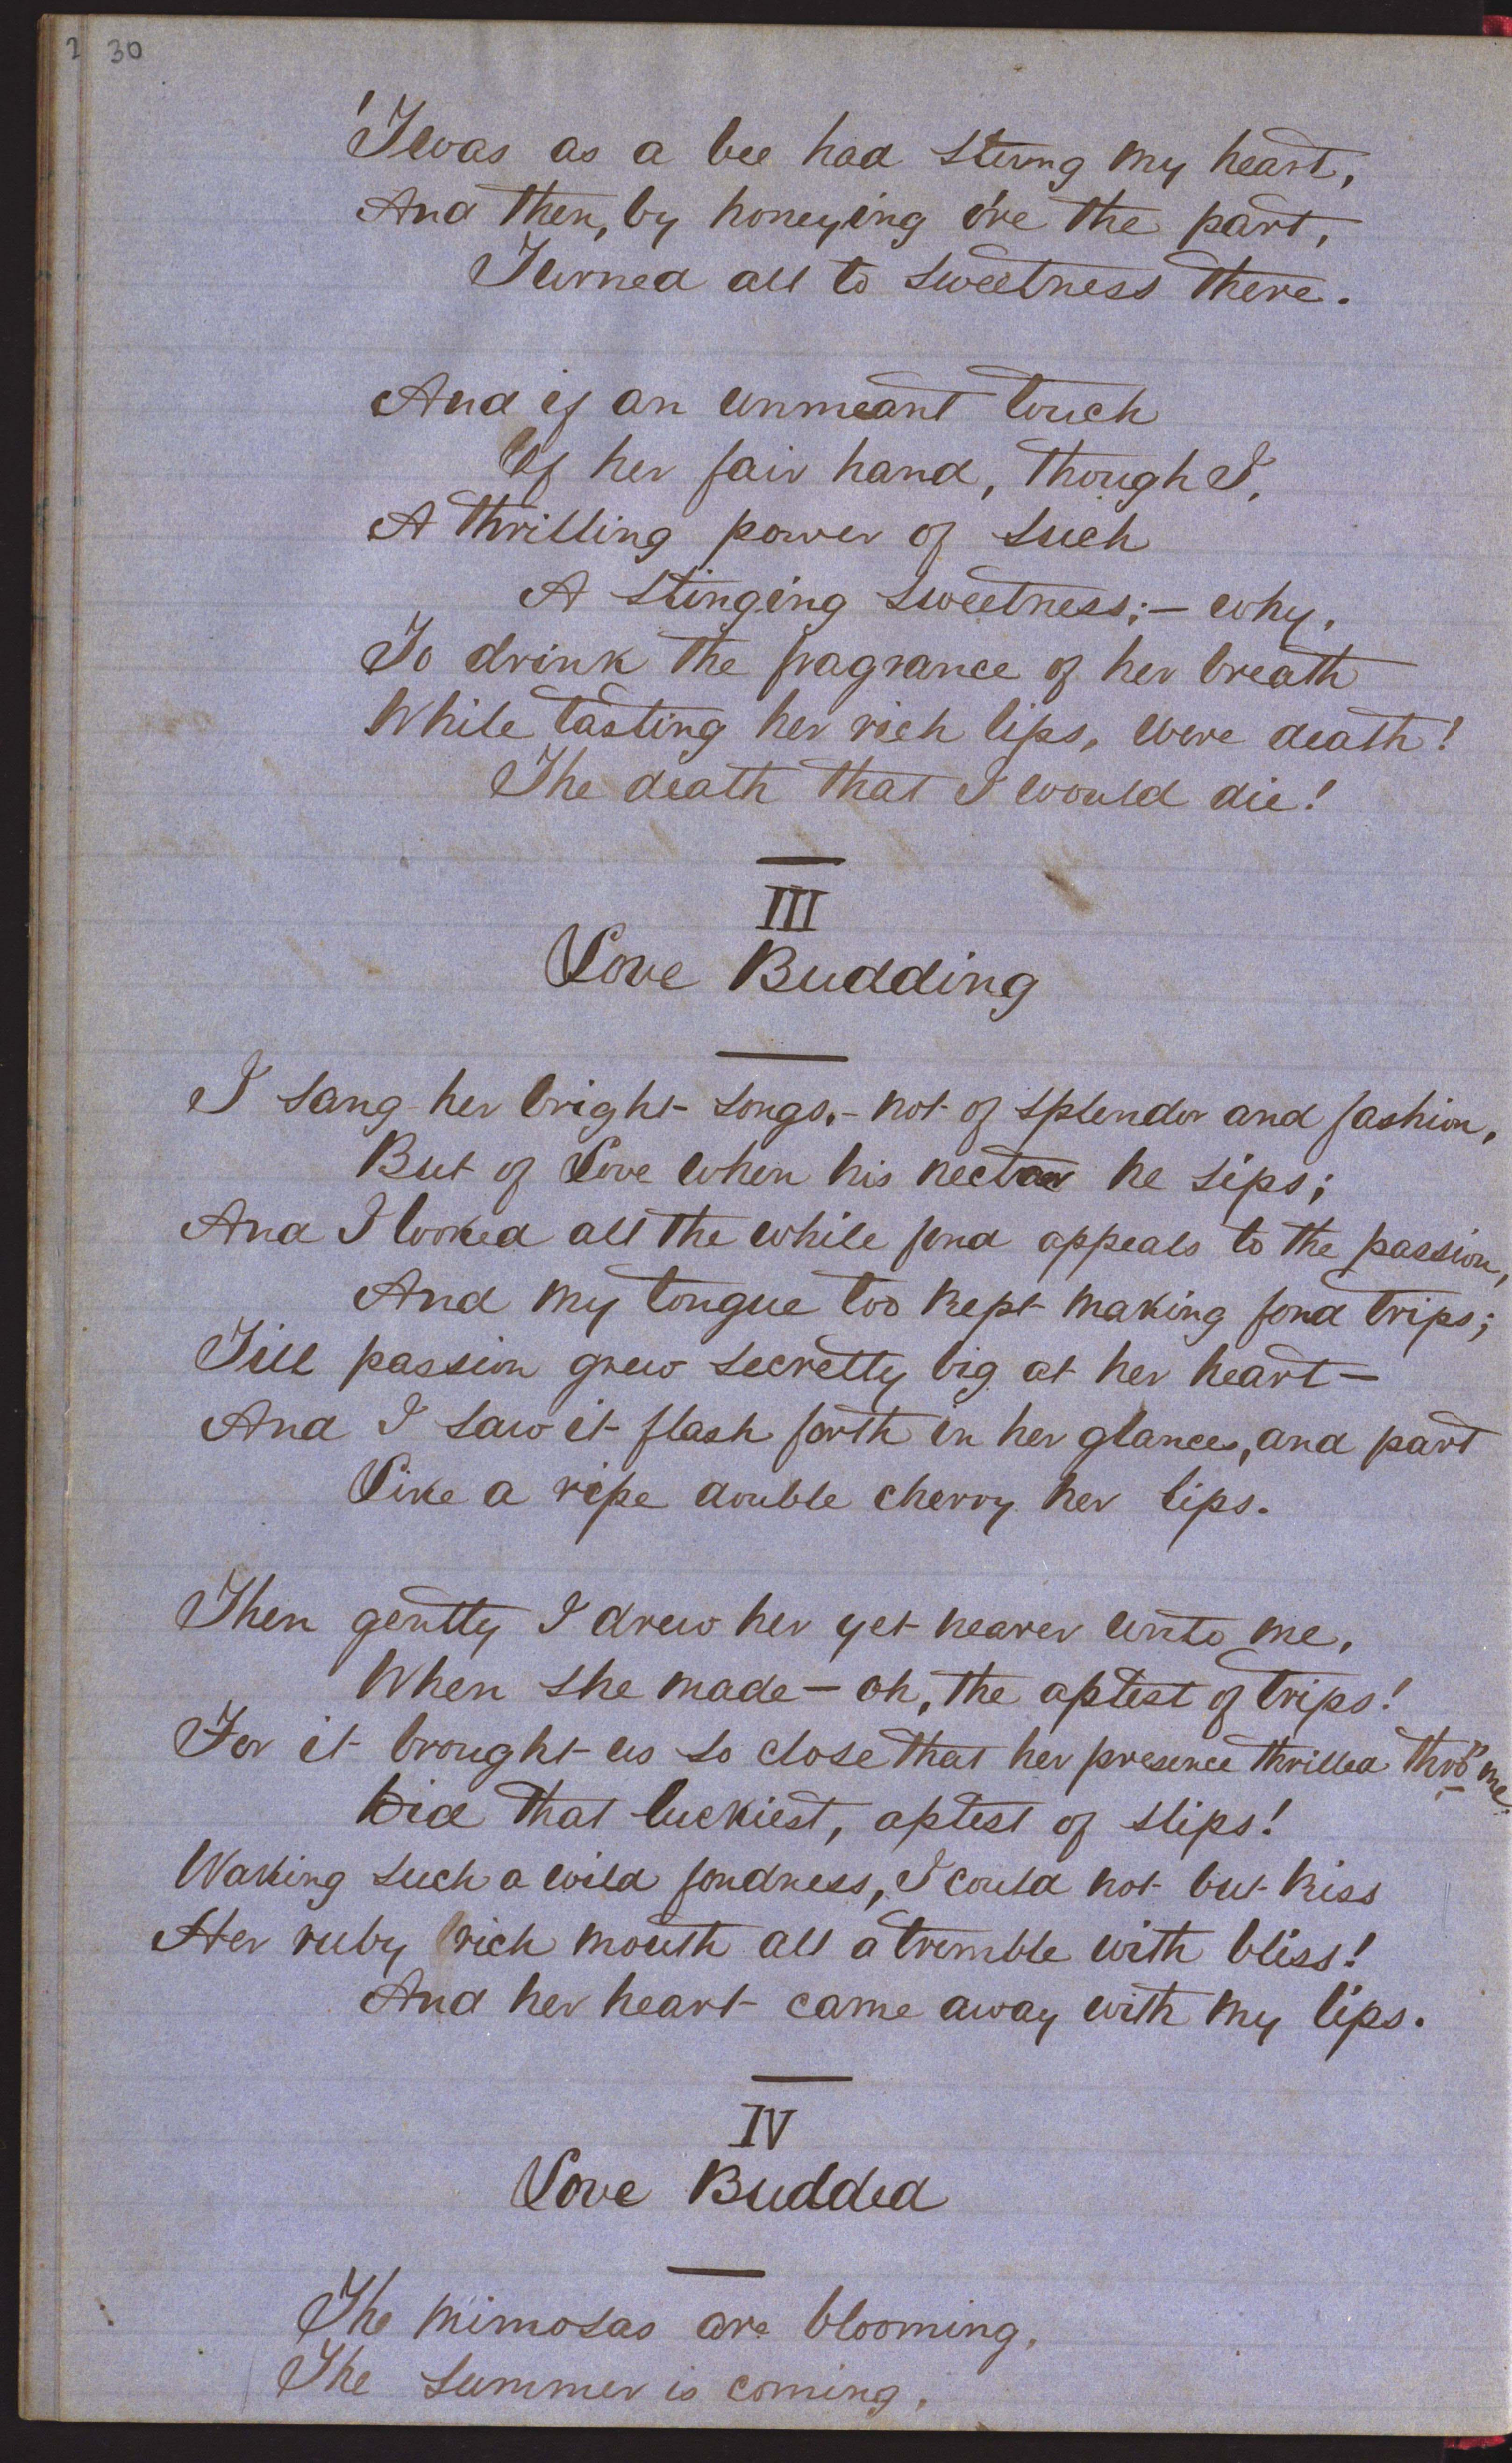 2 30
'Twas as a bee had stung my heart,
And then, by honeying o're the part,
Turned all to sweetness there.
And if an unmeant touch
Of her fair hand, though I,
A thrilling power of such
A stinging sweetness;— why,
To drink the fragrance of her breath
While tasting her rich lips, were death!
The death that I would die!
III
Love Budding
I sang her bright songs,- not of splendor and fashion,
But of Love when his nectar he sips;
And I looked all the while fond appeals to the passion,
And my tongue too kept making fond trips;
Till passion grew secretly big at her heart—
And I saw it flash forth in her glances, and part
Like a ripe double cherry her lips.
Then gently I drew her yet nearer unto me,
When she made— oh, the aptest of trips!
For it brought us so close that her presence thrilled thro' me
Did that luckiest, aptest of slips!
Waking such a wild fondness, I could not but kiss
Her ruby rich mouth all a tremble with bliss!
And her heart came away with my lips.
IV
Love Budded
The mimosas are blooming,
The summer is coming,